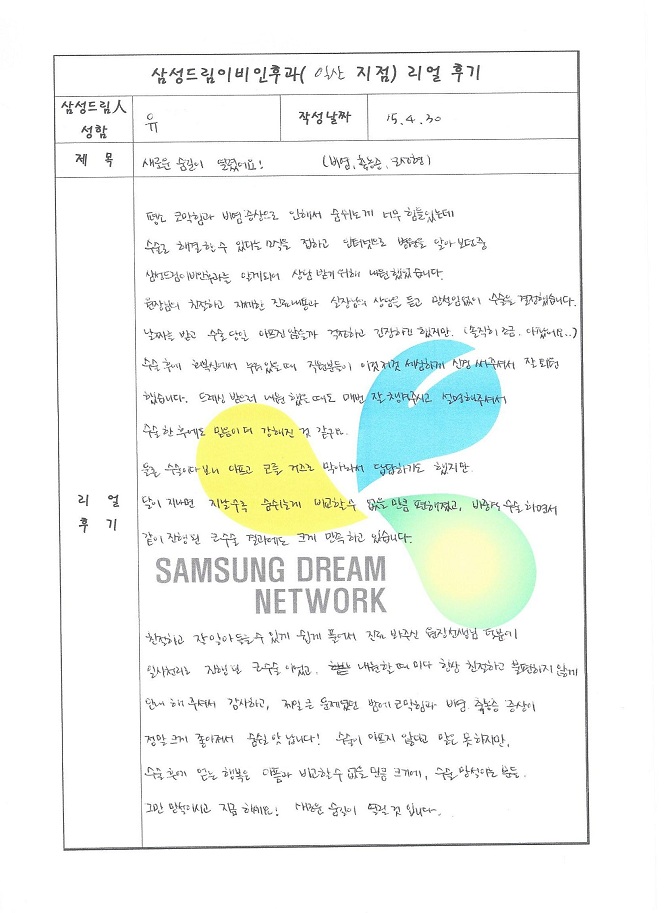 삼성드림이비인후과( 익산 지점) 리얼 후기
삼성드림人 성함
유
작성날짜
15.4.30
제 목
새로운 숨길이 열렸어요! (비염, 축농증, 코성형)
리 얼 후 기
평소 코막힘과 비염 증상으로 인해서 숨쉬는게 너무 힘들었는데
수술로 해결할 수 있다는 소식을 접하고 인터넷으로 병원을 알아 보던중
삼성드림이비인후과를 알게되어 상담 받기 위해 내원했었습니다.
원장님의 친절하고 자세한 진료내용과 실장님의 상담을 듣고 망설임없이 수술을 결정했습니다.
날짜를 받고 수술 당일 아프진 않을까 걱정하고 긴장하긴 했지만. (솔직히 조금. 아팠어요..)
수술 후에 회복실에서 누워있을때 직원분들이 이것저것 세심하게 신경 써주셔서 잘 퇴원
했습니다. 드레싱 받으러 내원 했을때도 매번 잘 챙겨주시고 설명해주셔서
수술한 후에도 믿음이 더 강해진 것 같아요.
물론 수술이다 보니 아프고 코를 거즈로 막아놔서 답답하기도 했지만.
달이 지나면 지날수록 숨쉬는게 비교할수 없을 만큼 편해졌고, 비염 수술 하면서
같이 진행 된 코수술 결과에도 크게 만족하고 있습니다.
SAMSUNG DREAM
NETWORK
친절하고 잘 알아 들을수 있게 쉽게 풀어서 진료 봐주신 원장선생님 덕분에
일사천리로 진행 된 코수술 이었고. 내원할 때 마다 항상 친절하고 불편하지 않게
안내 해 주셔서 감사하고, 제일 큰 문제였던 밤에 코막힘과 비염. 축농증 증상이
정말 크게 좋아져서 숨쉴 맛 납니다! 수술이 아프지 않다고 말은 못하지만,
수술 후에 얻는 행복은 아픔과 비교할수 없을 만큼 크기에, 수술 망설이는 분들.
그만 망설이시고 지금 하세요! 새로운 숨길이 열릴 것 입니다.